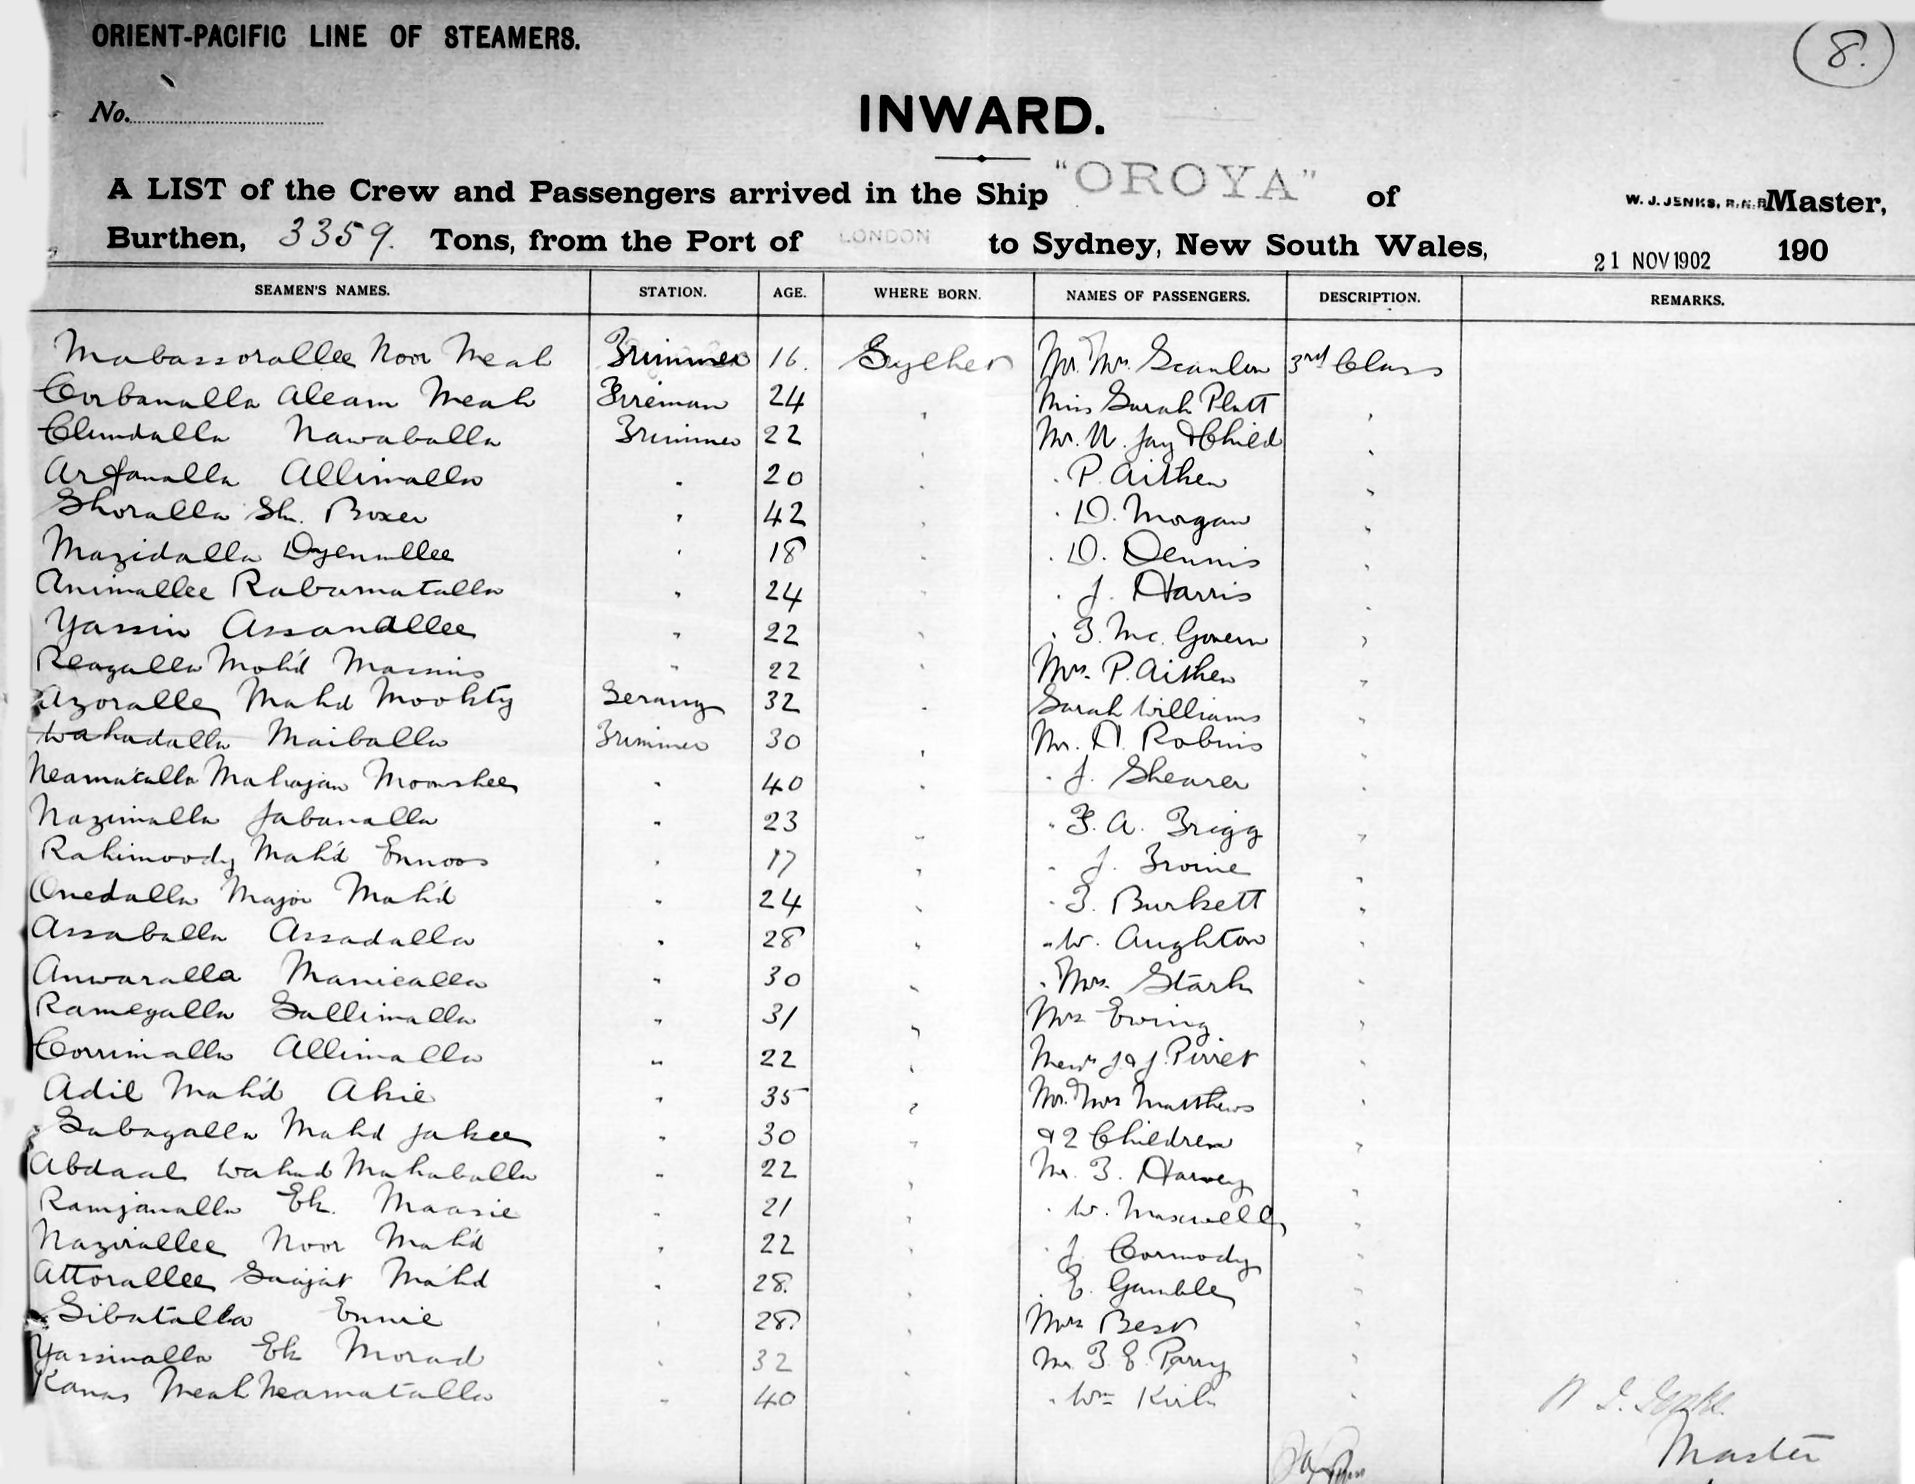 ORIENT-PACIFIC LINE OF STEAMERS.
8.
No.
INWARD.
A LIST of the Crew and Passengers arrived in the Ship "OROYA" of W. J. JENKS, R.N.R. Master,
Burthen, 3359. Tons, from the Port of LONDON to Sydney, New South Wales, 21 NOV 1902 190
SEAMEN'S NAMES. STATION. AGE. WHERE BORN. NAMES OF PASSENGERS. DESCRIPTION. REMARKS.
Mabassorallee Noor Meah Trimmer 16. Sylhet Mr. Mrs. Scanlon 3rd Class
Corbanalla Aleam Meah Fireman 24 " Miss Sarah Platt "
Chundalla Nawaballa Trimmer 22 " Mr. N. Jay & Child "
Arfanalla Allimalla " 20 " " P. Aitken "
Shoralla Sh. Boxer " 42 " " D. Morgan "
Mazidalla " 18 " " D. Dennis "
Animallee Rabamatalla " 24 " " J. Harris "
Yassin Assanallee " 22 " " T. Mc. Govern "
Reazalla Moh'd " 22 " Mrs. P. Aitken "
Azoralle Mahd Moohty Serang 32 " Sarah Williams "
Wahadalla Maiballa Trimmer 30 " Mr. A. Robins "
Neamatalla Mahajan Moonshee " 40 " " J. Shearer "
Nazimalla Jabanalla " 23 " " F. A. Trigg "
Rahimoody Mah'd Ennoos " 17 " " J. Irvine "
Onedalla Major Mah'd " 24 " " T. Burkett "
Assaballa Assadalla " 28 " " W. Aughton "
Anwaralla Manicalla " 30 " " Mrs. Stark "
Ramezalla Sallimalla " 31 " Mrs Ewing "
Corrimalla Allimalla " 22 " J & J. Pirret "
Adil Mah'd Akie " 35 " Mr. Mrs Matthews "
Sabazalla Mahd Jakee " 30 " & 2 Children "
Abdaal Wahad Mahaballa " 22 " Mr. T. Harvey "
Ramjanalla Ek. Maasie " 21 " " W. Maxwell "
Nazirallee Noor Mah'd " 22 " " J. Cormody "
Attorallee Mah'd " 28. " " E. Gamble "
Sibatalla Ennie " 28. " Mrs Best "
Yassinalla Ek Morad " 32 " Mr. T. E. Parry "
Kanas Meah Neamatalla " 40 " " Wm Kirk "
Master